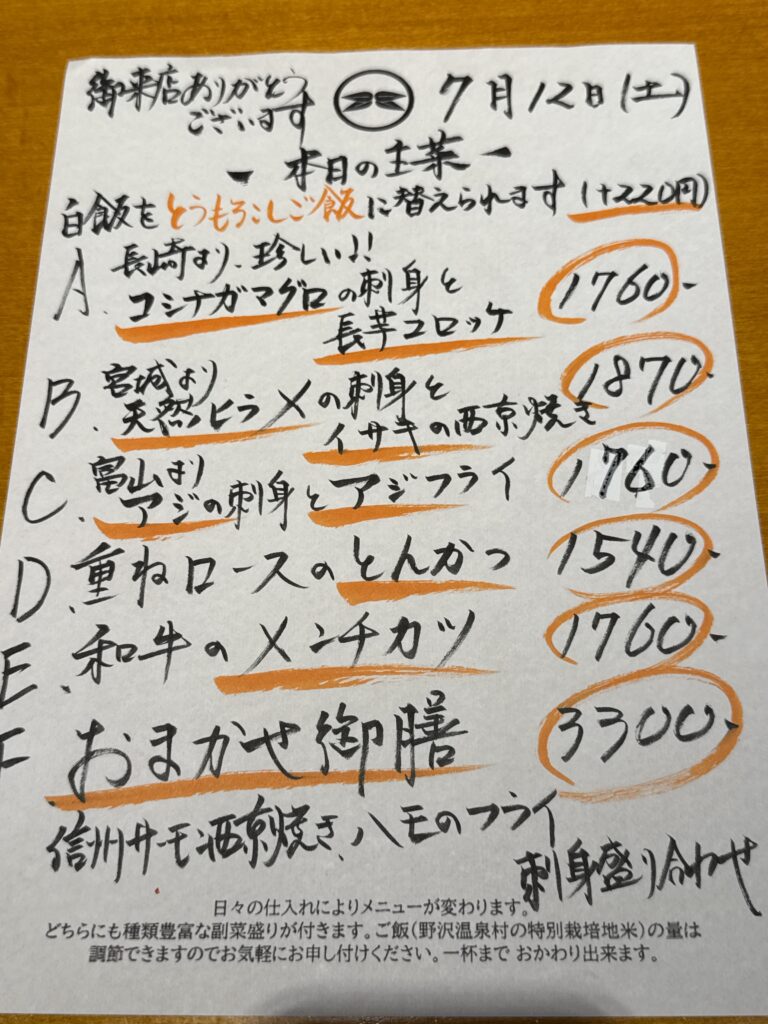 御来店ありがとう
ございます
7月12日(土)
- 本日の主菜 -
白飯をとうもろこしご飯に替えられます (+220円)
A. 長崎より、珍しい!!
コシナガマグロの刺身と
長芋コロッケ
1760-
B. 宮城より
天然ヒラメの刺身と
イサキの西京焼き
1870-
C. 富山より
アジの刺身とアジフライ
1760-
D. 重ねロースのとんかつ
1540-
E. 和牛のメンチカツ
1760-
F おまかせ御膳
3300-
信州サーモン西京焼き、ハモのフライ
刺身盛り合わせ
日々の仕入れによりメニューが変わります。
どちらにも種類豊富な副菜盛りが付きます。ご飯(野沢温泉村の特別栽培地米)の量は
調節できますのでお気軽にお申し付けください。一杯まで おかわり出来ます。